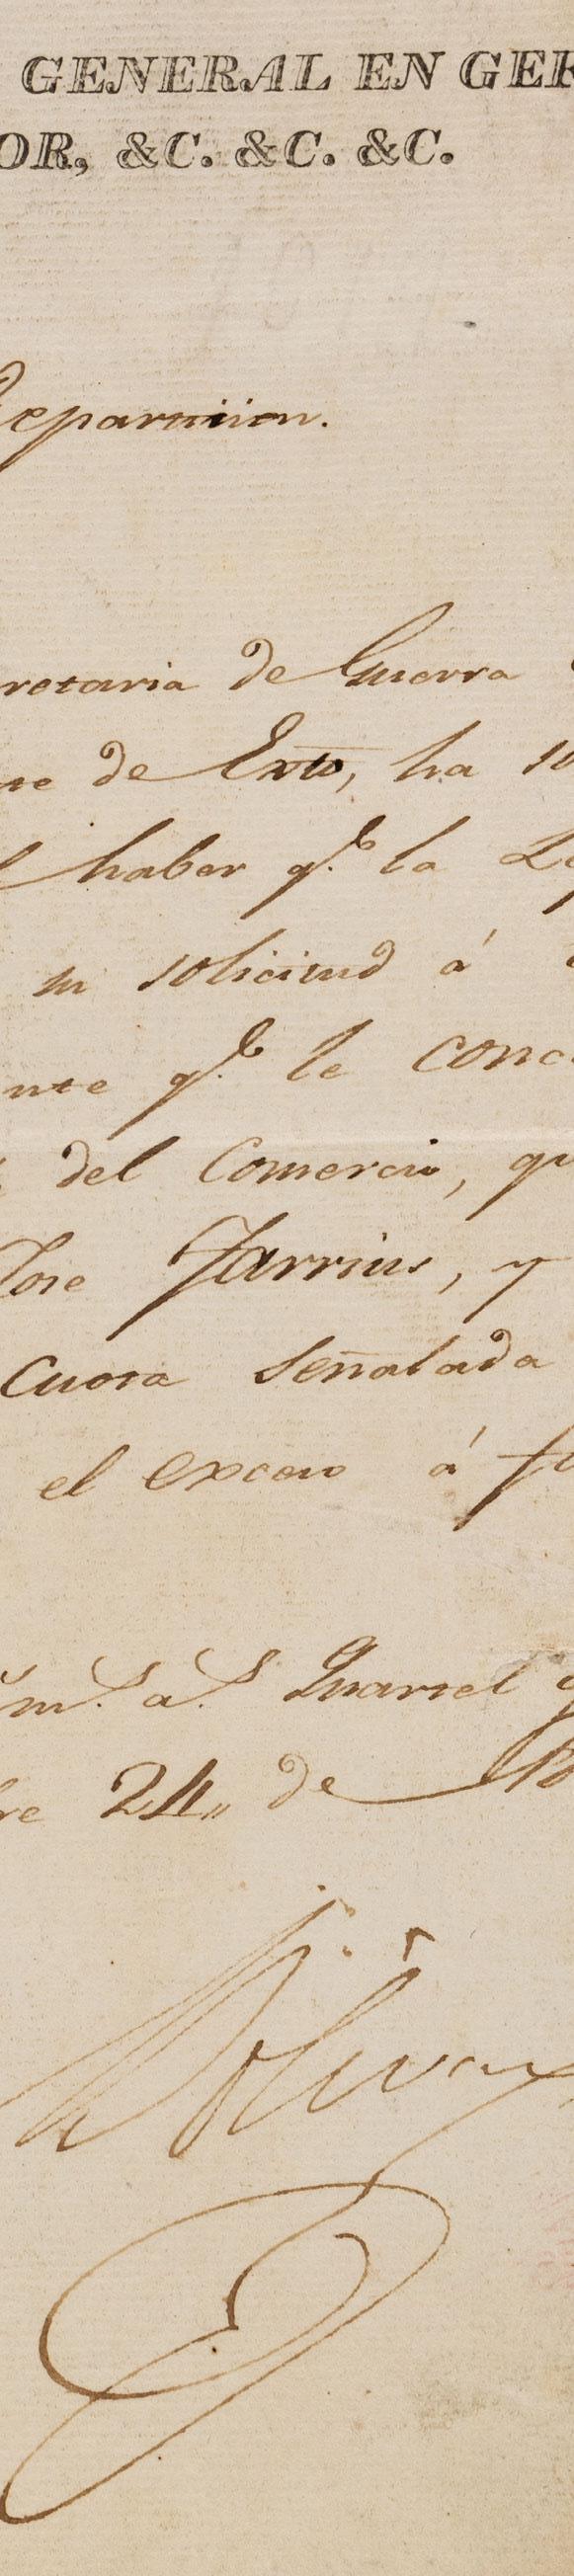 GENERAL EN GEF
OR, &C. &C. &C.
retaria de Guerra
de Exto, ha so
haber q.e la Le
su solicitud á
nte q.e le conc
del Comercio, qu
Jose Jarrius, y
Cuota señalada
el exceso á f
m.s a.s Quartel g
re 24,, de 18
Bolivar